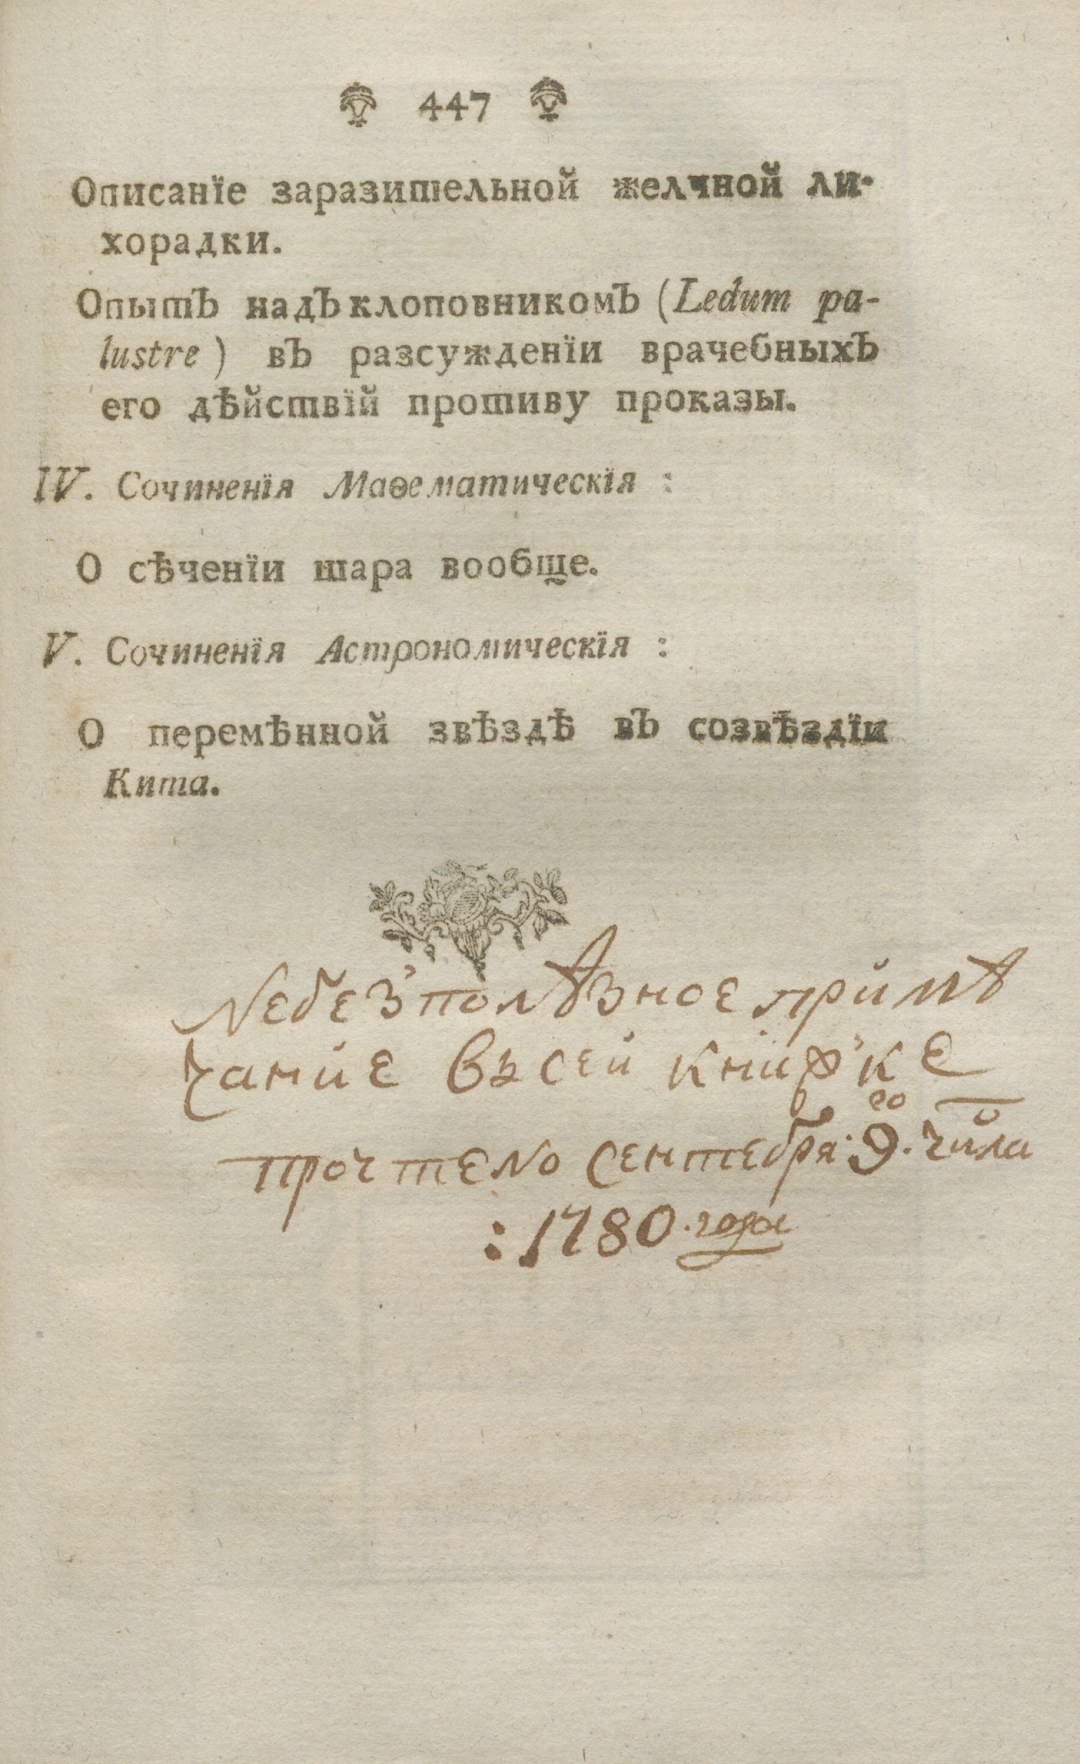 447
Описанїе заразительной желчной ли-
хорадки.
Опытъ надъ клоповникомъ (Ledum pa-
lustre) въ разсужденїи врачебныхъ
его дѣйствїй противу проказы.
IV. Сочиненїя Маѳематическїя :
О сѣченїи шара вообще.
V. Сочиненїя Астрономическїя :
О перемѣнной звѣздѣ въ созвѣздїи
Кита.
Небезполѣзное примѣ
чание въ сей книжке
прочтено сентебря: 9го. числа
: 1780. года